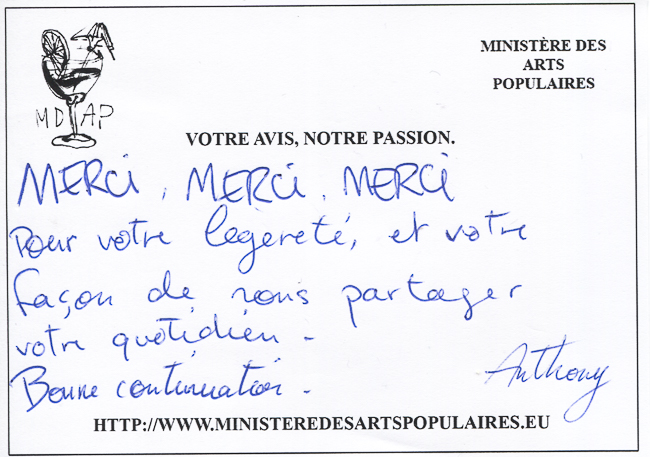 MINISTÈRE DES
ARTS
POPULAIRES
MD AP
VOTRE AVIS, NOTRE PASSION.
MERCI, MERCI, MERCI
Pour votre légèreté, et votre
façon de nous partager
votre quotidien.
Bonne continuation.
Anthony
HTTP://WWW.MINISTEREDESARTSPOPULAIRES.EU